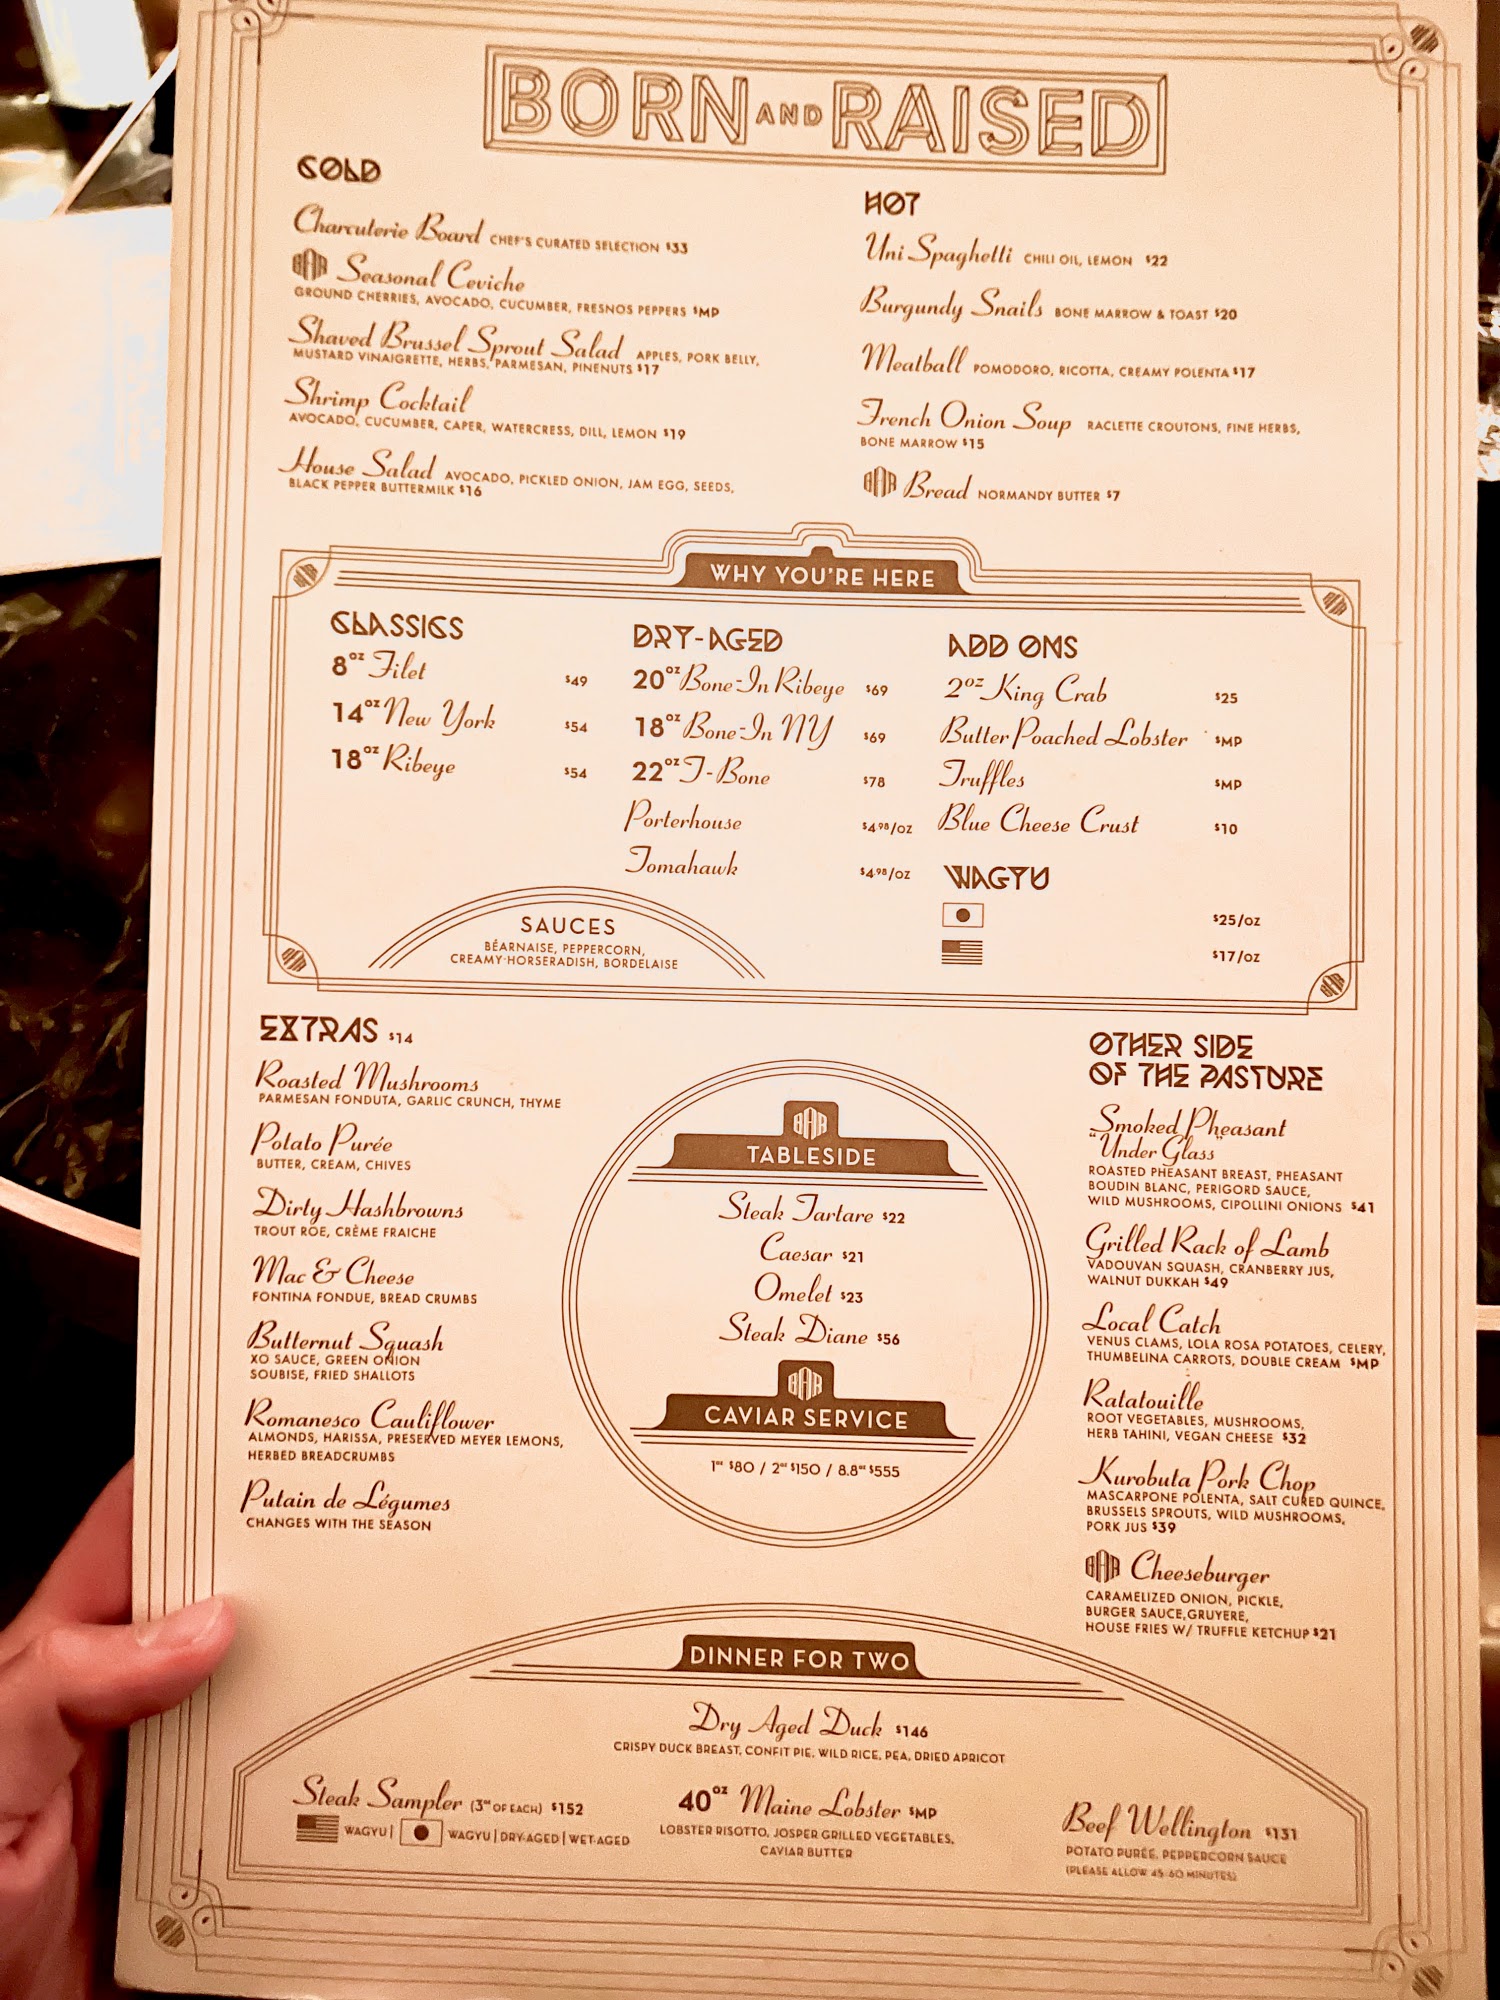 BORN AND RAISED
COLD
Charcuterie Board CHEF'S CURATED SELECTION $33
BAR Seasonal Ceviche
GROUND CHERRIES, AVOCADO, CUCUMBER, FRESNOS PEPPERS $MP
Shaved Brussel Sprout Salad APPLES, PORK BELLY,
MUSTARD VINAIGRETTE, HERBS, PARMESAN, PINENUTS $17
Shrimp Cocktail
AVOCADO, CUCUMBER, CAPER, WATERCRESS, DILL, LEMON $19
House Salad AVOCADO, PICKLED ONION, JAM EGG, SEEDS,
BLACK PEPPER BUTTERMILK $16
HOT
Uni Spaghetti CHILI OIL, LEMON $22
Burgundy Snails BONE MARROW & TOAST $20
Meatball POMODORO, RICOTTA, CREAMY POLENTA $17
French Onion Soup RACLETTE CROUTONS, FINE HERBS,
BONE MARROW $15
BAR Bread NORMANDY BUTTER $7
WHY YOU'RE HERE
CLASSICS
8oz Filet $49
14oz New York $54
18oz Ribeye $54
DRY-AGED
20oz Bone-In Ribeye $69
18oz Bone-In NY $69
22oz T-Bone $78
Porterhouse $4.98/OZ
Tomahawk $4.98/OZ
ADD ONS
2oz King Crab $25
Butter Poached Lobster $MP
Truffles $MP
Blue Cheese Crust $10
WAGYU
$25/OZ
$17/OZ
SAUCES
BÉARNAISE, PEPPERCORN,
CREAMY-HORSERADISH, BORDELAISE
EXTRAS $14
Roasted Mushrooms
PARMESAN FONDUTA, GARLIC CRUNCH, THYME
Potato Purée
BUTTER, CREAM, CHIVES
Dirty Hashbrowns
TROUT ROE, CRÈME FRAICHE
Mac & Cheese
FONTINA FONDUE, BREAD CRUMBS
Butternut Squash
XO SAUCE, GREEN ONION
SOUBISE, FRIED SHALLOTS
Romanesco Cauliflower
ALMONDS, HARISSA, PRESERVED MEYER LEMONS,
HERBED BREADCRUMBS
Putain de Légumes
CHANGES WITH THE SEASON
BAR
TABLESIDE
Steak Tartare $22
Caesar $21
Omelet $23
Steak Diane $56
BAR
CAVIAR SERVICE
1oz $80 / 2oz $150 / 8.8oz $555
OTHER SIDE
OF THE PASTURE
Smoked Pheasant
"Under Glass"
ROASTED PHEASANT BREAST, PHEASANT
BOUDIN BLANC, PERIGORD SAUCE,
WILD MUSHROOMS, CIPOLLINI ONIONS $41
Grilled Rack of Lamb
VADOUVAN SQUASH, CRANBERRY JUS,
WALNUT DUKKAH $49
Local Catch
VENUS CLAMS, LOLA ROSA POTATOES, CELERY,
THUMBELINA CARROTS, DOUBLE CREAM $MP
Ratatouille
ROOT VEGETABLES, MUSHROOMS,
HERB TAHINI, VEGAN CHEESE $32
Kurobuta Pork Chop
MASCARPONE POLENTA, SALT CURED QUINCE,
BRUSSELS SPROUTS, WILD MUSHROOMS,
PORK JUS $39
BAR Cheeseburger
CARAMELIZED ONION, PICKLE,
BURGER SAUCE, GRUYERE,
HOUSE FRIES W/ TRUFFLE KETCHUP $21
DINNER FOR TWO
Dry Aged Duck $146
CRISPY DUCK BREAST, CONFIT PIE, WILD RICE, PEA, DRIED APRICOT
Steak Sampler (3oz OF EACH) $152
WAGYU | WAGYU | DRY-AGED | WET-AGED
40oz Maine Lobster $MP
LOBSTER RISOTTO, JOSPER GRILLED VEGETABLES,
CAVIAR BUTTER
Beef Wellington $131
POTATO PURÉE, PEPPERCORN SAUCE
(PLEASE ALLOW 45-60 MINUTES)